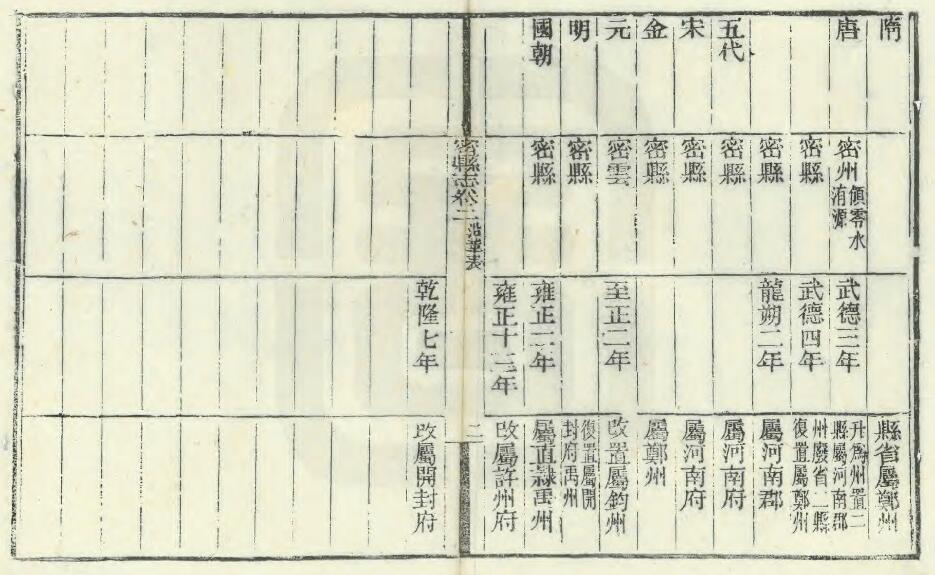 隋
縣省屬鄭州
唐
密州領零水洧源
武德三年
升爲州置二縣屬河南郡
密縣
武德四年
州廢省二縣復置屬鄭州
密縣
龍朔二年
屬河南郡
五代
密縣
屬河南府
宋
密縣
屬河南府
金
密縣
屬鄭州
元
密雲
至正二年
改置屬鈞州
明
密縣
復置屬開封府禹州
國朝
密縣
雍正二年
屬直隸禹州
雍正十二年
改屬許州府
密縣志卷二
沿革表
二
乾隆七年
改屬開封府